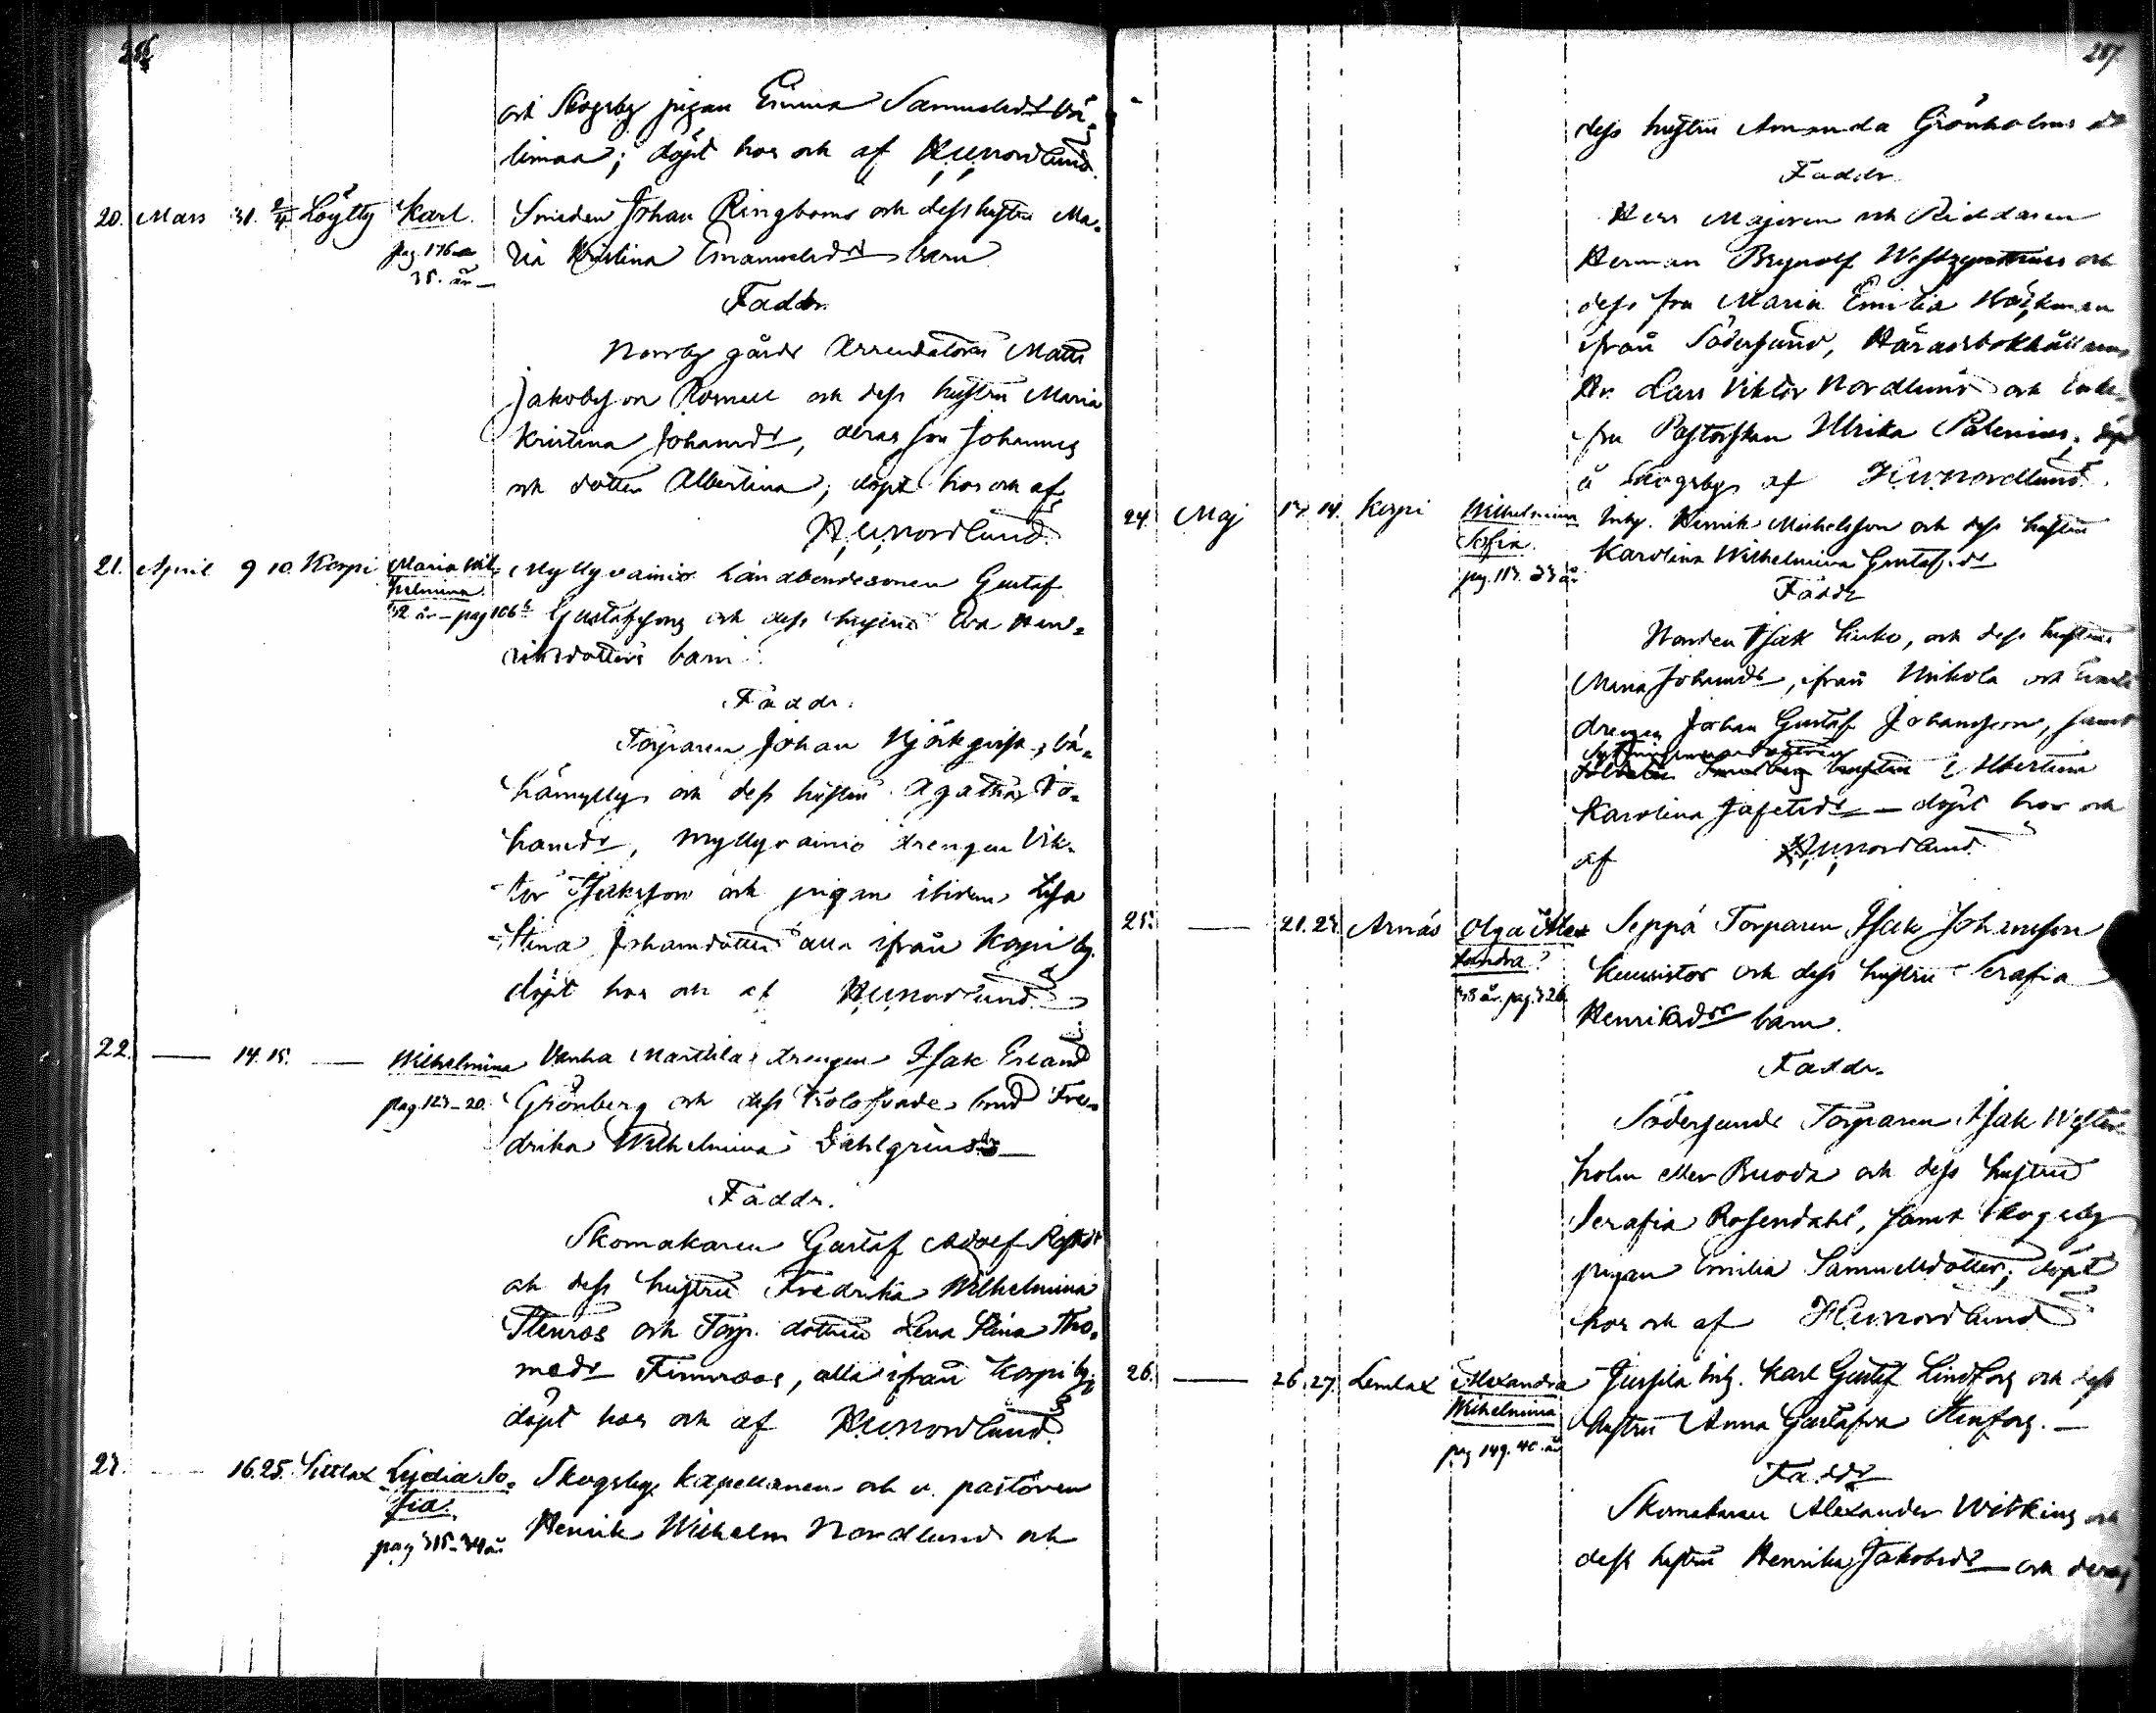 286
och Skogsby pigan Emma Samuelsdr Vä-
limaa; döpt hos och af HWNordlund.
20. Mars 31. 2/4 Löytty Karl. Smeden Johan Ringboms och dess hustru Ma-
pag. 176 ria Kristina Emanuelsdr barn
35. år
Faddr.
Norrby gårds Arrendatorn Matts
Jakobsson Rosnell och dess hustru Maria
Kristina Johansdr, deras son Johannes
och dotter Albertina; döpt hos och af
HWNordlund.
21. April 9 10. Korpi Maria Wil- Myllyvainio landbondesonen Gustaf
helmina.
32 år - pag 106 Gustafssons och dess hustru Eva Hen-
riksdotters barn
Faddr.
Torparen Johan Björkqvist, Vä-
hämylly och dess hustru Agatha Jo-
hansdr, Myllyvainio drengen Vik-
tor Isaksson och pigan ibidem Lisa
Stina Johansdotter alla ifrån Korpi by.
döpt hos och af HWNordlund
22. — 14. 15. — Wilhelmina Vanha Marttila drengen Isak Erland
pag. 123 - 20. Grönberg och dess trolofvade brud Fre-
drika Wilhelmina Dahlgrins
Faddr.
Skomakaren Gustaf Adolf
och dess hustru Fredrika Wilhelmina
Stenros och Torp. dottren Lena Stina Tho-
masdr Finnroos, alla ifrån Korpi by;
döpt hos och af HWNordlund.
23. — 16. 25. Sittlax Lydia So- Skogsby kapellanen och v. pastoren
fia.
pag 315 - 34 år. Henrik Wilhelm Nordlund och
287
dess hustru Amanda Grönholms
Faddr.
Herr Majoren och Riddaren
Herman Brynolf och
dess fru Maria Emilia
ifrån Södersund, Häradsbokhållaren
Hr. Lars Viktor Nordlund och Enke-
fru Pastorskan Ulrika Polenius; döpt
å Skogsby af HWNordlund.
24. Maj 13. 14. Korpi Wilhelmina Inhy. Henrik Michelsson och dess hustru
Sofia. Karolina Wilhelmina Gustafsdr
pag. 113. 23 år
Faddr
Isak och dess hustru
Maria Johansdr, ifrån och
drengen Johan Gustaf Johansson, samt
Albertina
Karolina Jafetsdr — döpt hos och
af HWNordlund
25. — 21. 23 Arnäs Olga Alex Seppä Torparen Isak Johansson
andra
38 år. pag. 326 och dess hustru Serafia
Henriksdr barn.
Faddr.
Södersunds Torparen Isak Wester-
holm eller Ruoda och dess hustru
Serafia Rosendahl, samt Skogsby
pigan Emilia Samuelsdotter; döpt
hos och af HWNordlund
26. — 26. 27. Lemlax Alexandra Jussila Inhy. Karl Gustaf Lindfors och dess
Wilhelmina hustru Anna Gustafva Stenfors. —
pag 149. 40. år
Faddr
Skomakaren Alexander Witting och
dess hustru Henrika Jakobsdr — och deras